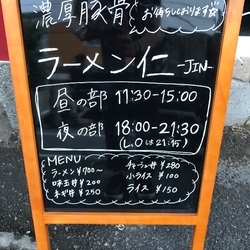 濃厚豚骨
お待ちしております
ラーメン仁 -JIN-
昼の部 11:30-15:00
夜の部 18:00-21:30
(L.Oは21:15)
MENU
ラーメン ¥700〜
味玉丼 ¥200
ネギ丼 ¥250
チャーシュー丼 ¥280
小ライス ¥100
ライス ¥150